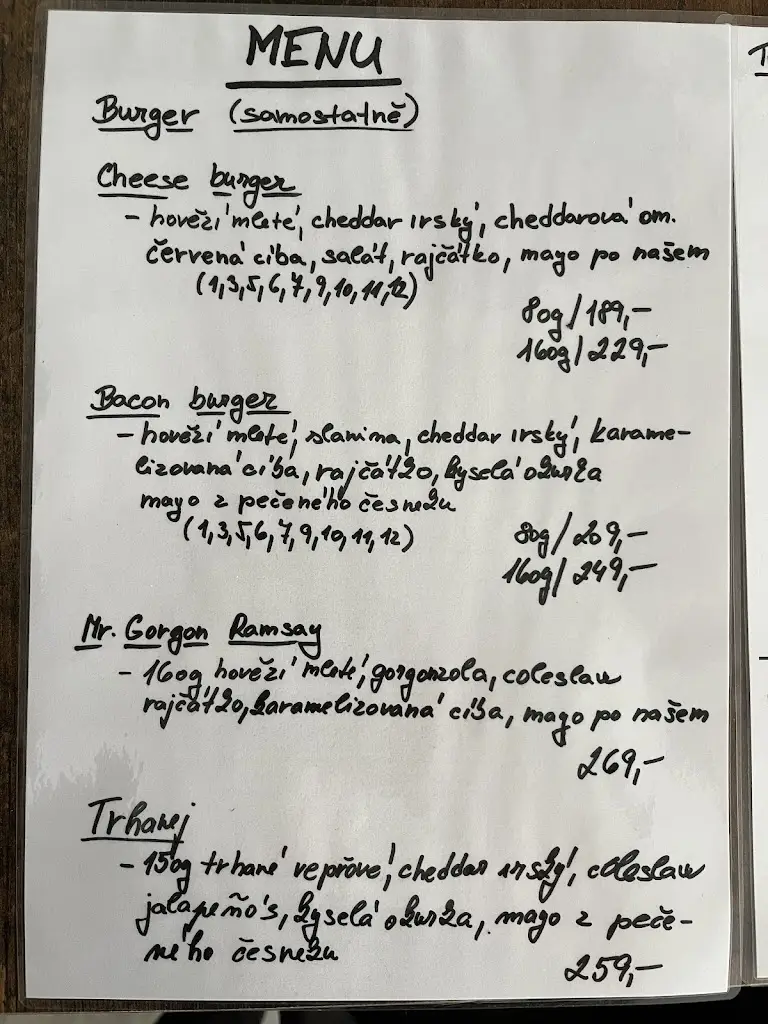 MENU
Burger (samostatně)
Cheese burger
- hovězí mleté, cheddar irský, cheddarová om.
červená ciba, salát, rajčátko, mayo po našem
(1,3,5,6,7,9,10,11,12)
80g/189,-
160g/229,-
Bacon burger
- hovězí mleté, slanina, cheddar irský, karame-
lizovaná ciba, rajčátko, kyselá okurka
mayo z pečeného česneku
(1,3,5,6,7,9,10,11,12)
80g/209,-
160g/249,-
Mr. Gorgon Ramsay
- 160g hovězí mleté, gorgonzola, coleslaw
rajčátko, karamelizovaná ciba, mayo po našem
269,-
Trhanej
- 150g trhané vepřové, cheddar irský, coleslaw
jalapeño's, kyselá okurka, mayo z peče-
ného česneku
259,-